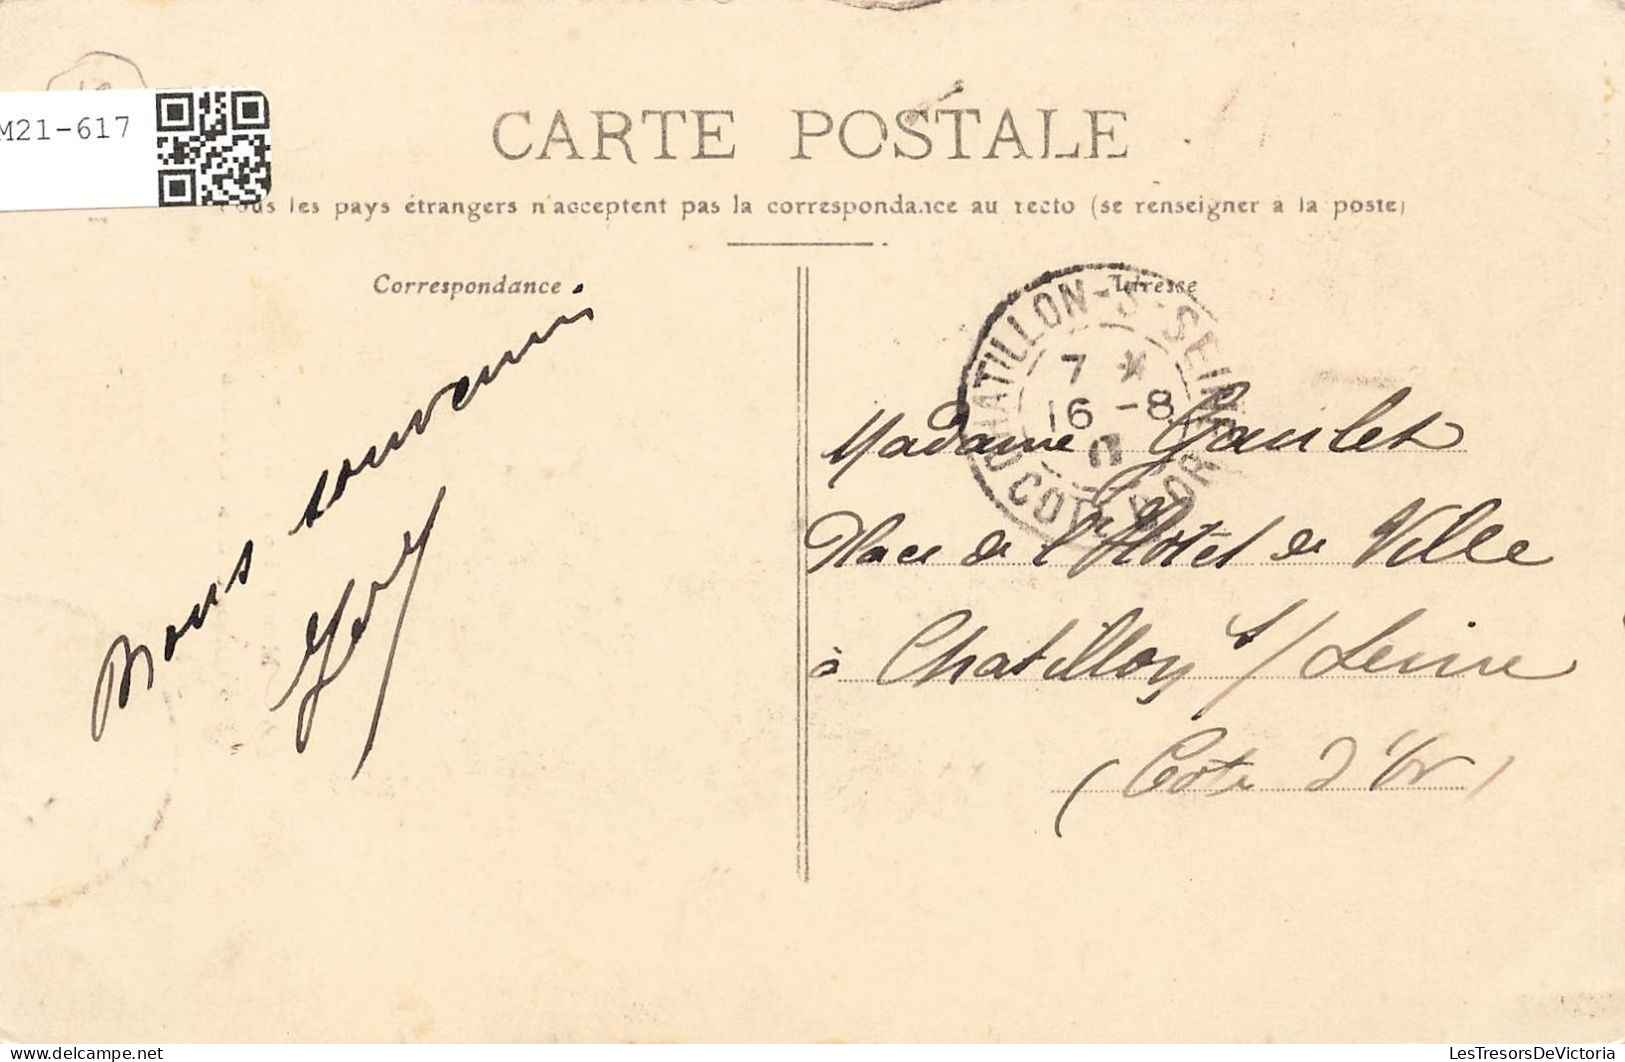 M21-617
CARTE POSTALE
Tous les pays étrangers n'acceptent pas la correspondance au recto (se renseigner à la poste)
Correspondance
Adresse
CHATILLON-S-SEINE
7 *
16 -8
COTE D'OR
Bons souvenirs
Madame Gaulet
Place de l'Hôtel de Ville
à Chatillon s/ Seine
(Côte d'Or)
delcampe.net
LesTresorsDeVictoria